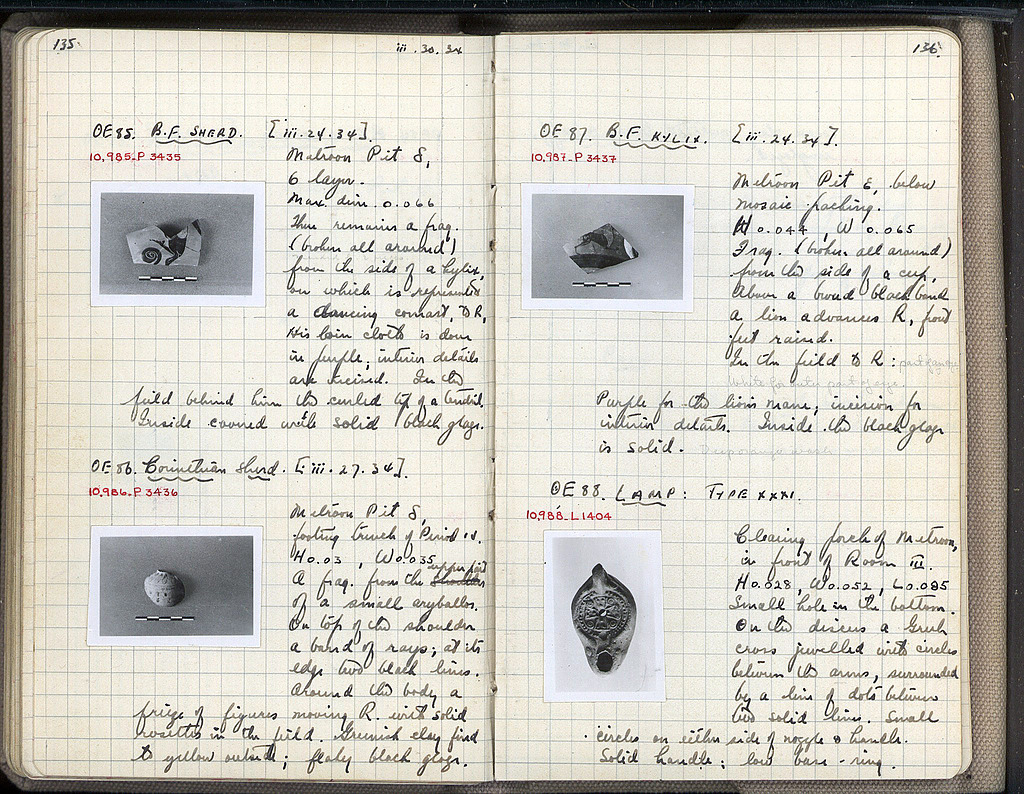 135.
iii.30.34
OE 85. B.F. SHERD. [iii.24.34].
10,985-P 3435
Metroon Pit S,
6 layer.
Max. dim. 0.066
There remains a frag.
(broken all around)
from the side of a kylix,
on which is represented
a dancing comast, to R,
His loin cloth is done
in purple; interior details
are incised. In the
field behind him the curled tip of a tendril.
Inside covered with solid black glaze.
OE 86. Corinthian Sherd. [iii.27.34].
10,986-P 3436
Metroon Pit S,
footing trench of Period
H 0.03, W 0.035
A frag. from the upper part
of a small aryballos.
On top of the shoulder
a band of rays; at its
edge two black lines.
Around the body a
frieze of figures moving R. with solid
rosettes in the field. Greenish clay fired
to yellow outside; flaky black glaze.
136.
OE 87. B.F. KYLIX. [iii.24.34].
10,987-P 3437
Metroon Pit E, below
mosaic packing.
H 0.044, W 0.065
Frag. (broken all around)
from the side of a cup,
Above a broad black band
a lion advances R, front
feet raised.
In the field to R: part of an eye
White for outer part of eye
Purple for the lion's mane; incision for
interior details. Inside the black glaze
is solid. Deep orange wash
OE 88. LAMP: TYPE XXXI.
10,988-L 1404
Clearing porch of Metroon,
in front of Room III.
H 0.028, W 0.052, L 0.085
Small hole in the bottom.
On the discus a Greek
cross jewelled with circles
between the arms, surrounded
by a line of dots between
two solid lines. Small
circles on either side of nozzle & handle.
Solid handle; low base-ring.